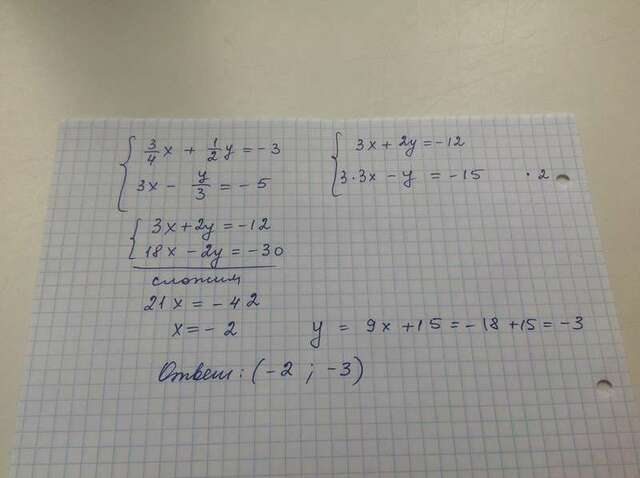 3/4 x + 1/2 y = -3
3x - y/3 = -5
3x + 2y = -12
3·3x - y = -15 ·2
3x + 2y = -12
18x - 2y = -30
сложим
21x = -42
x = -2
y = 9x + 15 = -18 + 15 = -3
Ответ: (-2 ; -3)